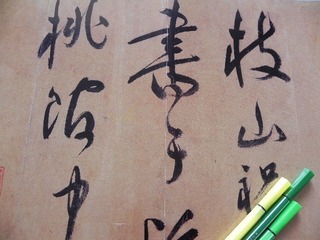 枝山祝
書于
桃中